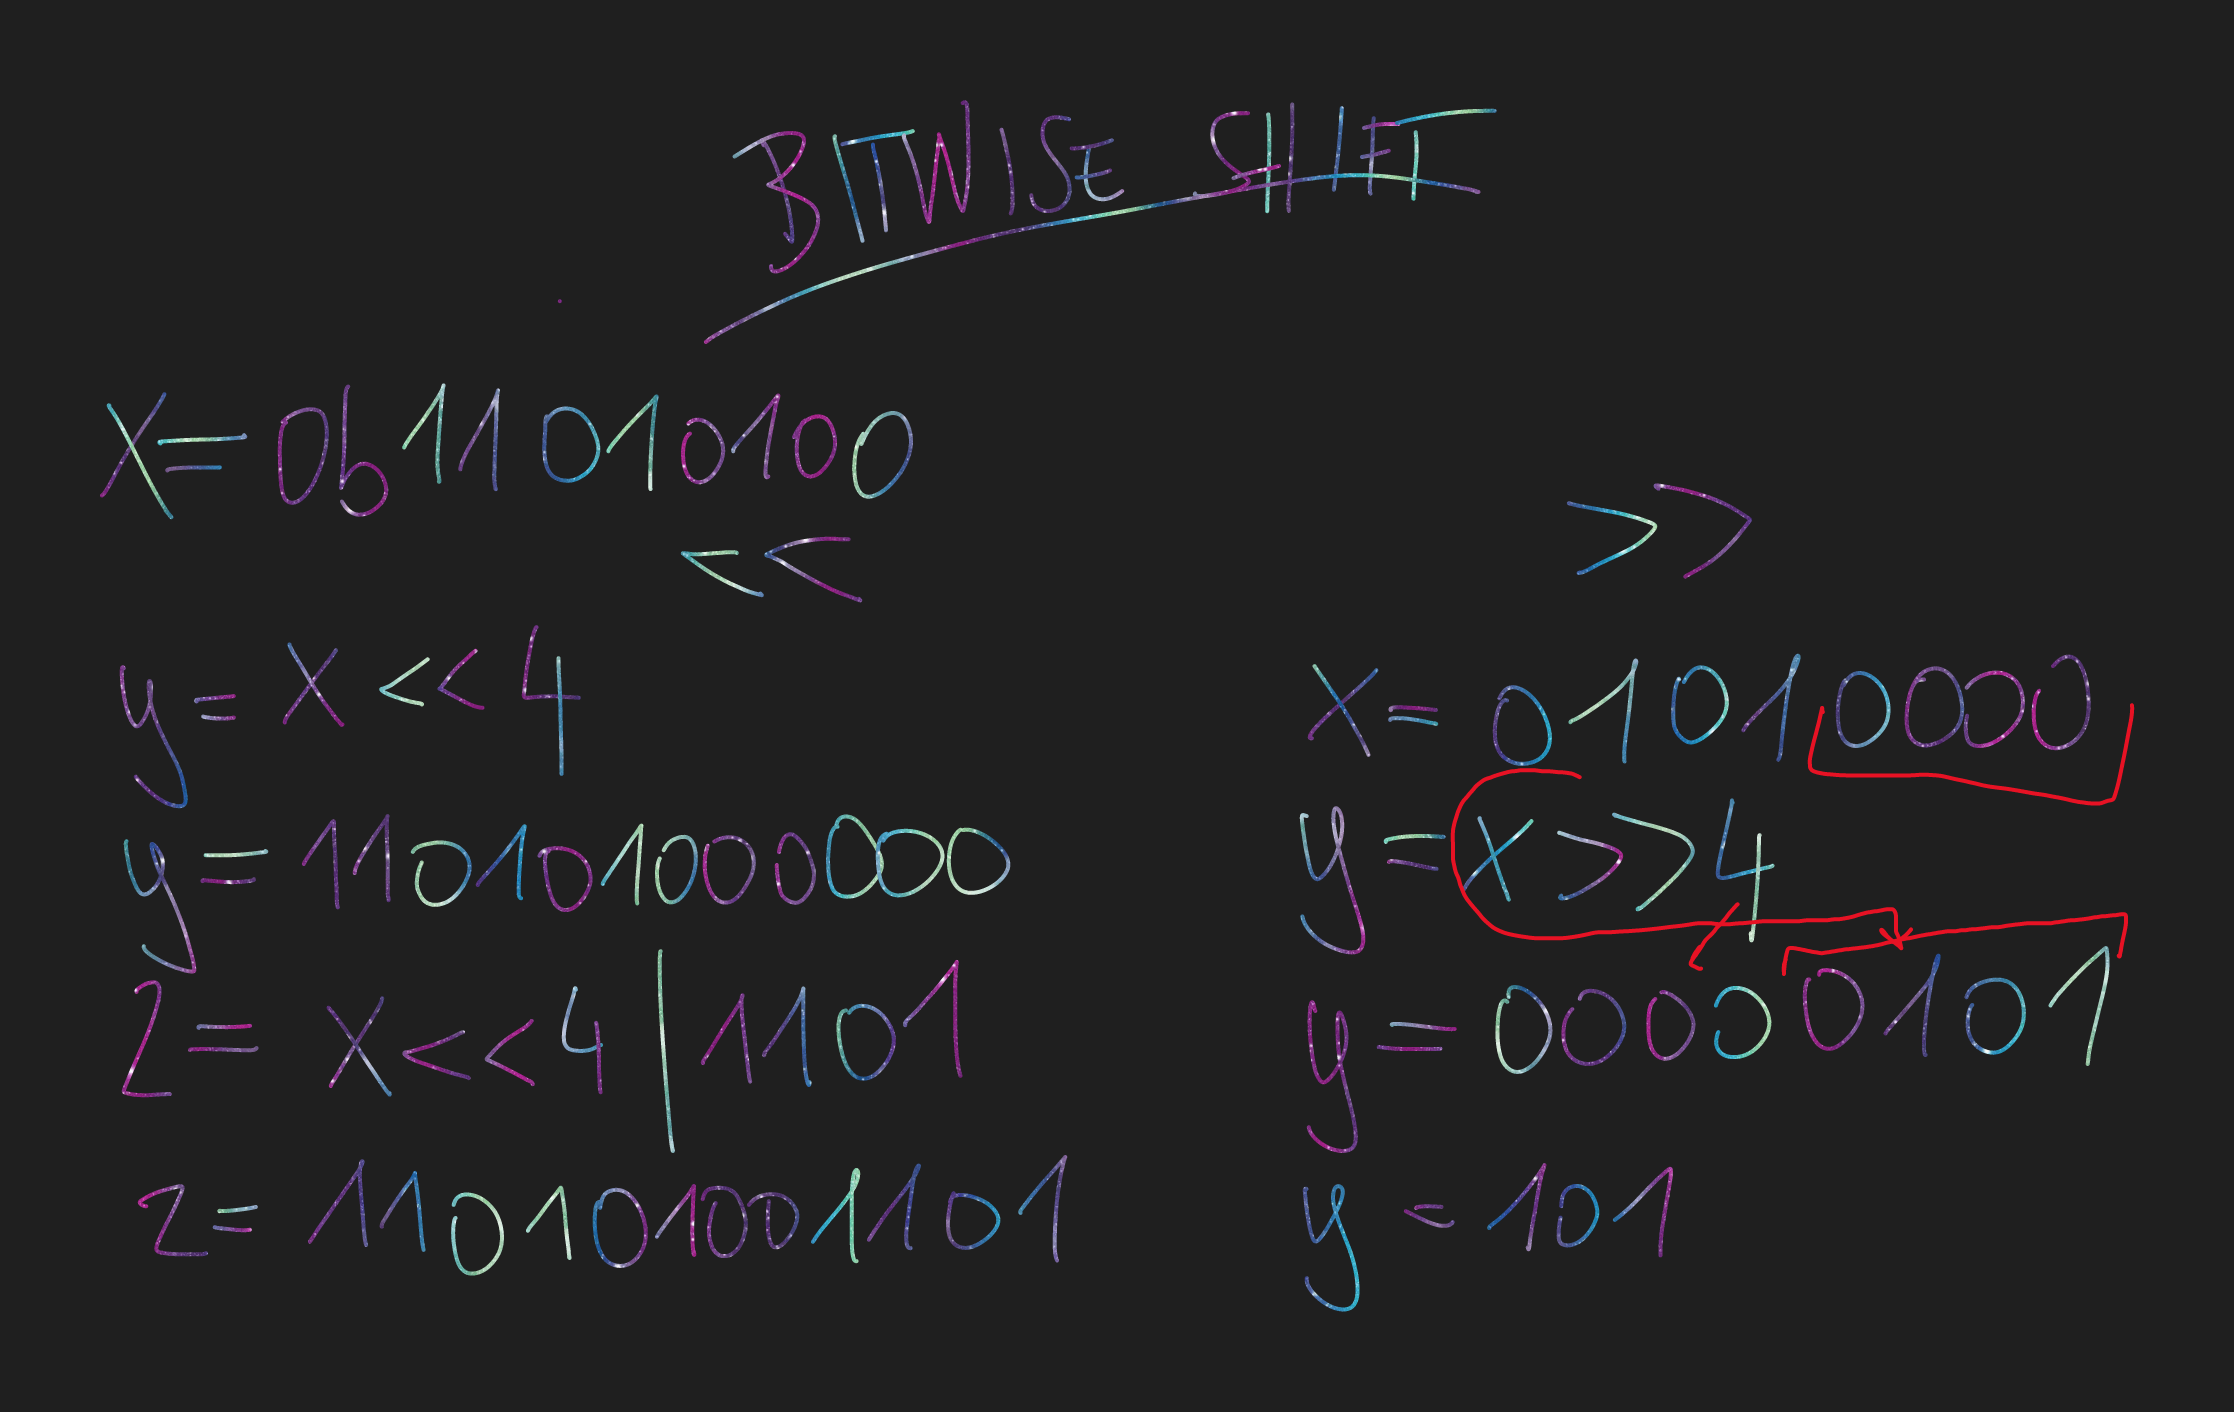 BITWISE SHIFT
x = 0b11010100
<<
y = x << 4
y = 110101000000
z = x << 4 | 1101
z = 110101001101
>>
x = 01010000
y = x >> 4
y = 00000101
y = 101